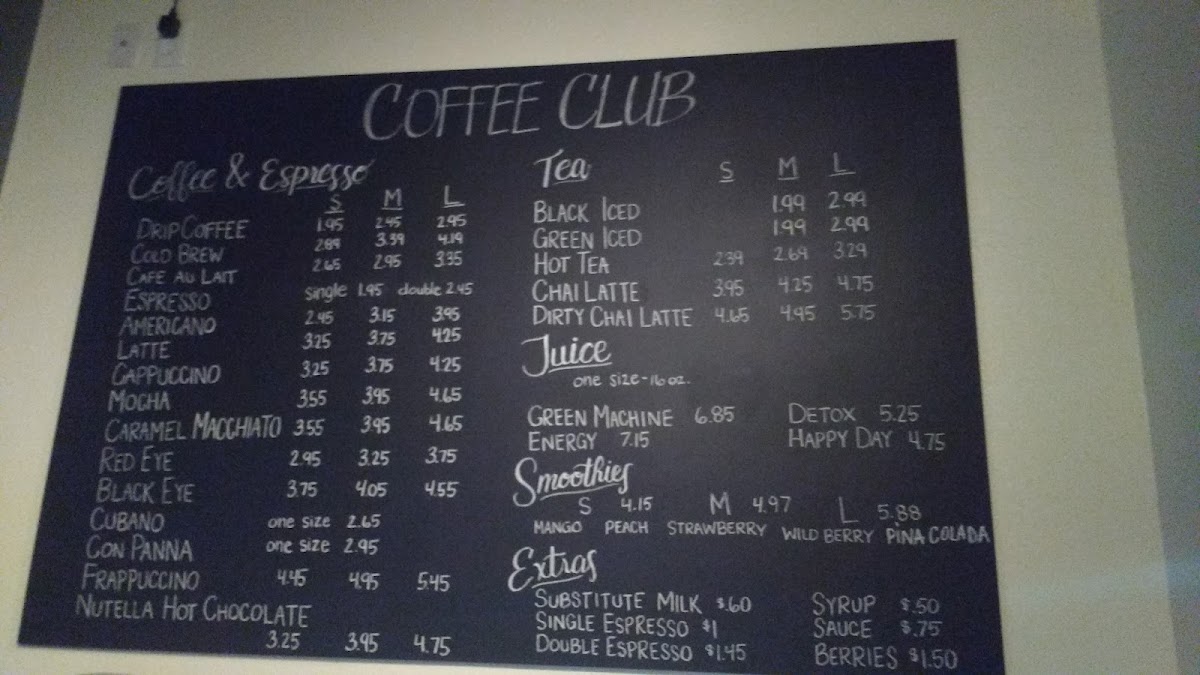 COFFEE CLUB
Coffee & Espresso
S M L
DRIP COFFEE 1.95 2.45 2.95
COLD BREW 2.89 3.39 4.19
CAFE AU LAIT 2.65 2.95 3.35
ESPRESSO single 1.95 double 2.45
AMERICANO 2.45 3.15 3.95
LATTE 3.25 3.75 4.25
CAPPUCCINO 3.25 3.75 4.25
MOCHA 3.55 3.95 4.65
CARAMEL MACCHIATO 3.55 3.95 4.65
RED EYE 2.95 3.25 3.75
BLACK EYE 3.75 4.05 4.55
CUBANO one size 2.65
CON PANNA one size 2.95
FRAPPUCCINO 4.45 4.95 5.45
NUTELLA HOT CHOCOLATE
3.25 3.95 4.75
Tea S M L
BLACK ICED 1.99 2.99
GREEN ICED 1.99 2.99
HOT TEA 2.39 2.69 3.29
CHAI LATTE 3.95 4.25 4.75
DIRTY CHAI LATTE 4.65 4.95 5.75
Juice
one size-16 oz.
GREEN MACHINE 6.85 DETOX 5.25
ENERGY 7.15 HAPPY DAY 4.75
Smoothies
S 4.15 M 4.97 L 5.88
MANGO PEACH STRAWBERRY WILD BERRY PINA COLADA
Extras
SUBSTITUTE MILK $.60 SYRUP $.50
SINGLE ESPRESSO $1 SAUCE $.75
DOUBLE ESPRESSO $1.45 BERRIES $1.50